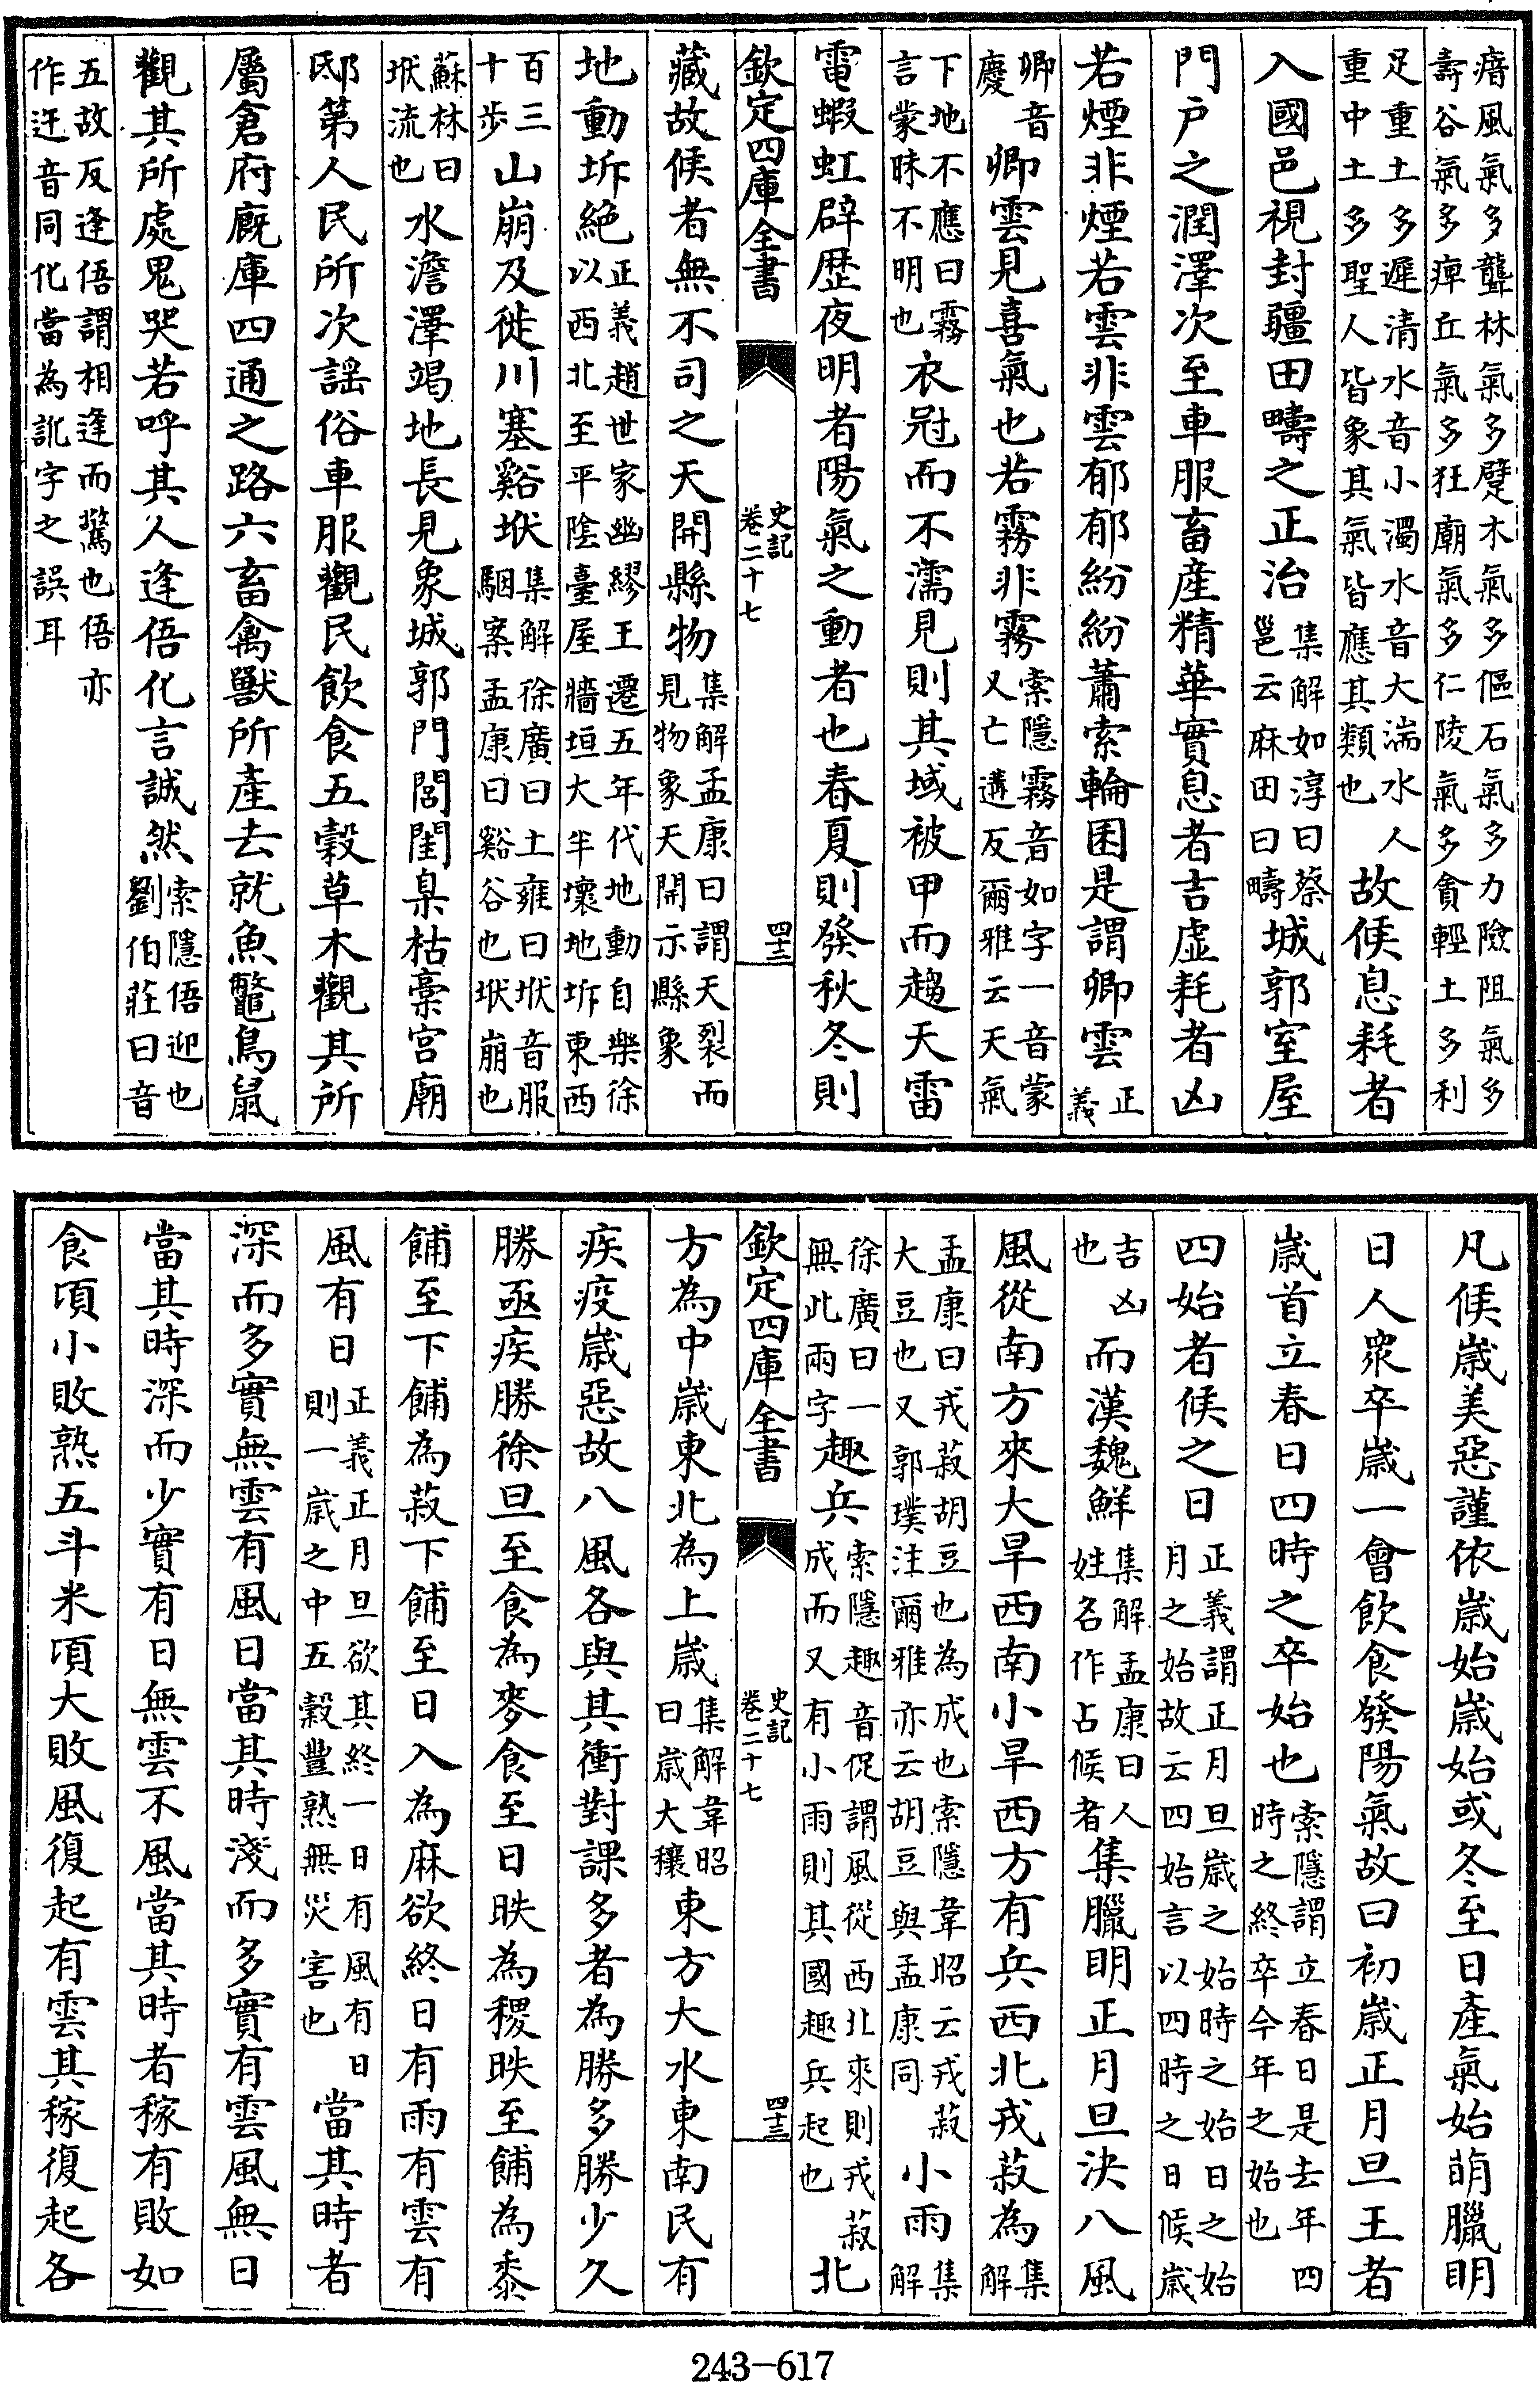 瘖風氣多聾林氣多躄木氣多傴石氣多力險阻氣多
壽谷氣多痺丘氣多狂廟氣多仁陵氣多貪輕土多利
足重土多遲清水音小濁水音大湍水人
重中土多聖人皆象其氣皆應其類也故候息耗者
入國邑視封疆田疇之正治集解如淳曰蔡
邕云麻田曰疇城郭室屋
門户之潤澤次至車服畜産精華實息者吉虚耗者凶
若煙非煙若雲非雲郁郁紛紛蕭索輪囷是謂卿雲正
義
卿音
慶卿雲見喜氣也若霧非霧索隱霧音如字一音蒙
又亡遘反爾雅云天氣
下地不應曰霧
言蒙昧不明也衣冠而不濡見則其域被甲而趨天雷
電蝦虹辟歴夜明者陽氣之動者也春夏則發秋冬則
欽定四庫全書
史記
卷二十七
四十二
藏故候者無不司之天開縣物集解孟康曰謂天裂而
見物象天開示縣象
地動坼絶正義趙世家幽繆王遷五年代地動自樂徐
以西北至平陰臺屋牆垣大半壞地坼東西
百三
十步山崩及徙川塞谿垘集解徐廣曰土雍曰垘音服
駰案孟康曰谿谷也垘崩也
蘇林曰
垘流也水澹澤竭地長見象城郭門閭閨臬枯槀宫廟
邸第人民所次謡俗車服觀民飲食五穀草木觀其所
屬倉府廐庫四通之路六畜禽獸所産去就魚鼈鳥鼠
觀其所處鬼哭若呼其人逢俉化言誠然索隱俉迎也
劉伯莊曰音
五故反逢俉謂相逢而驚也俉亦
作迕音同化當為訛字之誤耳
凡候歲美惡謹依歲始歲始或冬至日產氣始萌臘明
日人衆卒歲一會飲食發陽氣故曰初歲正月旦王者
歲首立春日四時之卒始也索隱謂立春日是去年四
時之終卒今年之始也
四始者候之日正義謂正月旦歲之始時之始日之始
月之始故云四始言以四時之日候歲
吉凶
也而漢魏鮮集解孟康曰人
姓名作占候者集臘明正月旦決八風
風從南方來大旱西南小旱西方有兵西北戎菽為集
解
孟康曰戎菽胡豆也為成也索隱韋昭云戎菽
大豆也又郭璞注爾雅亦云胡豆與孟康同小雨集
解
徐廣曰一
無此兩字趣兵索隱趣音促謂風從西北來則戎菽
成而又有小雨則其國趣兵起也北
欽定四庫全書
史記
卷二十七
四十三
方為中歲東北為上歲集解韋昭
曰歲大穰東方大水東南民有
疾疫歲惡故八風各與其衝對課多者為勝多勝少久
勝亟疾勝徐旦至食為麥食至日昳為稷昳至餔為黍
餔至下餔為菽下餔至日入為麻欲終日有雨有雲有
風有日正義正月旦欲其終一日有風有日
則一歲之中五穀豐熟無災害也當其時者
深而多實無雲有風日當其時淺而多實有雲風無日
當其時深而少實有日無雲不風當其時者稼有敗如
食頃小敗熟五斗米頃大敗風復起有雲其稼復起各
243-617